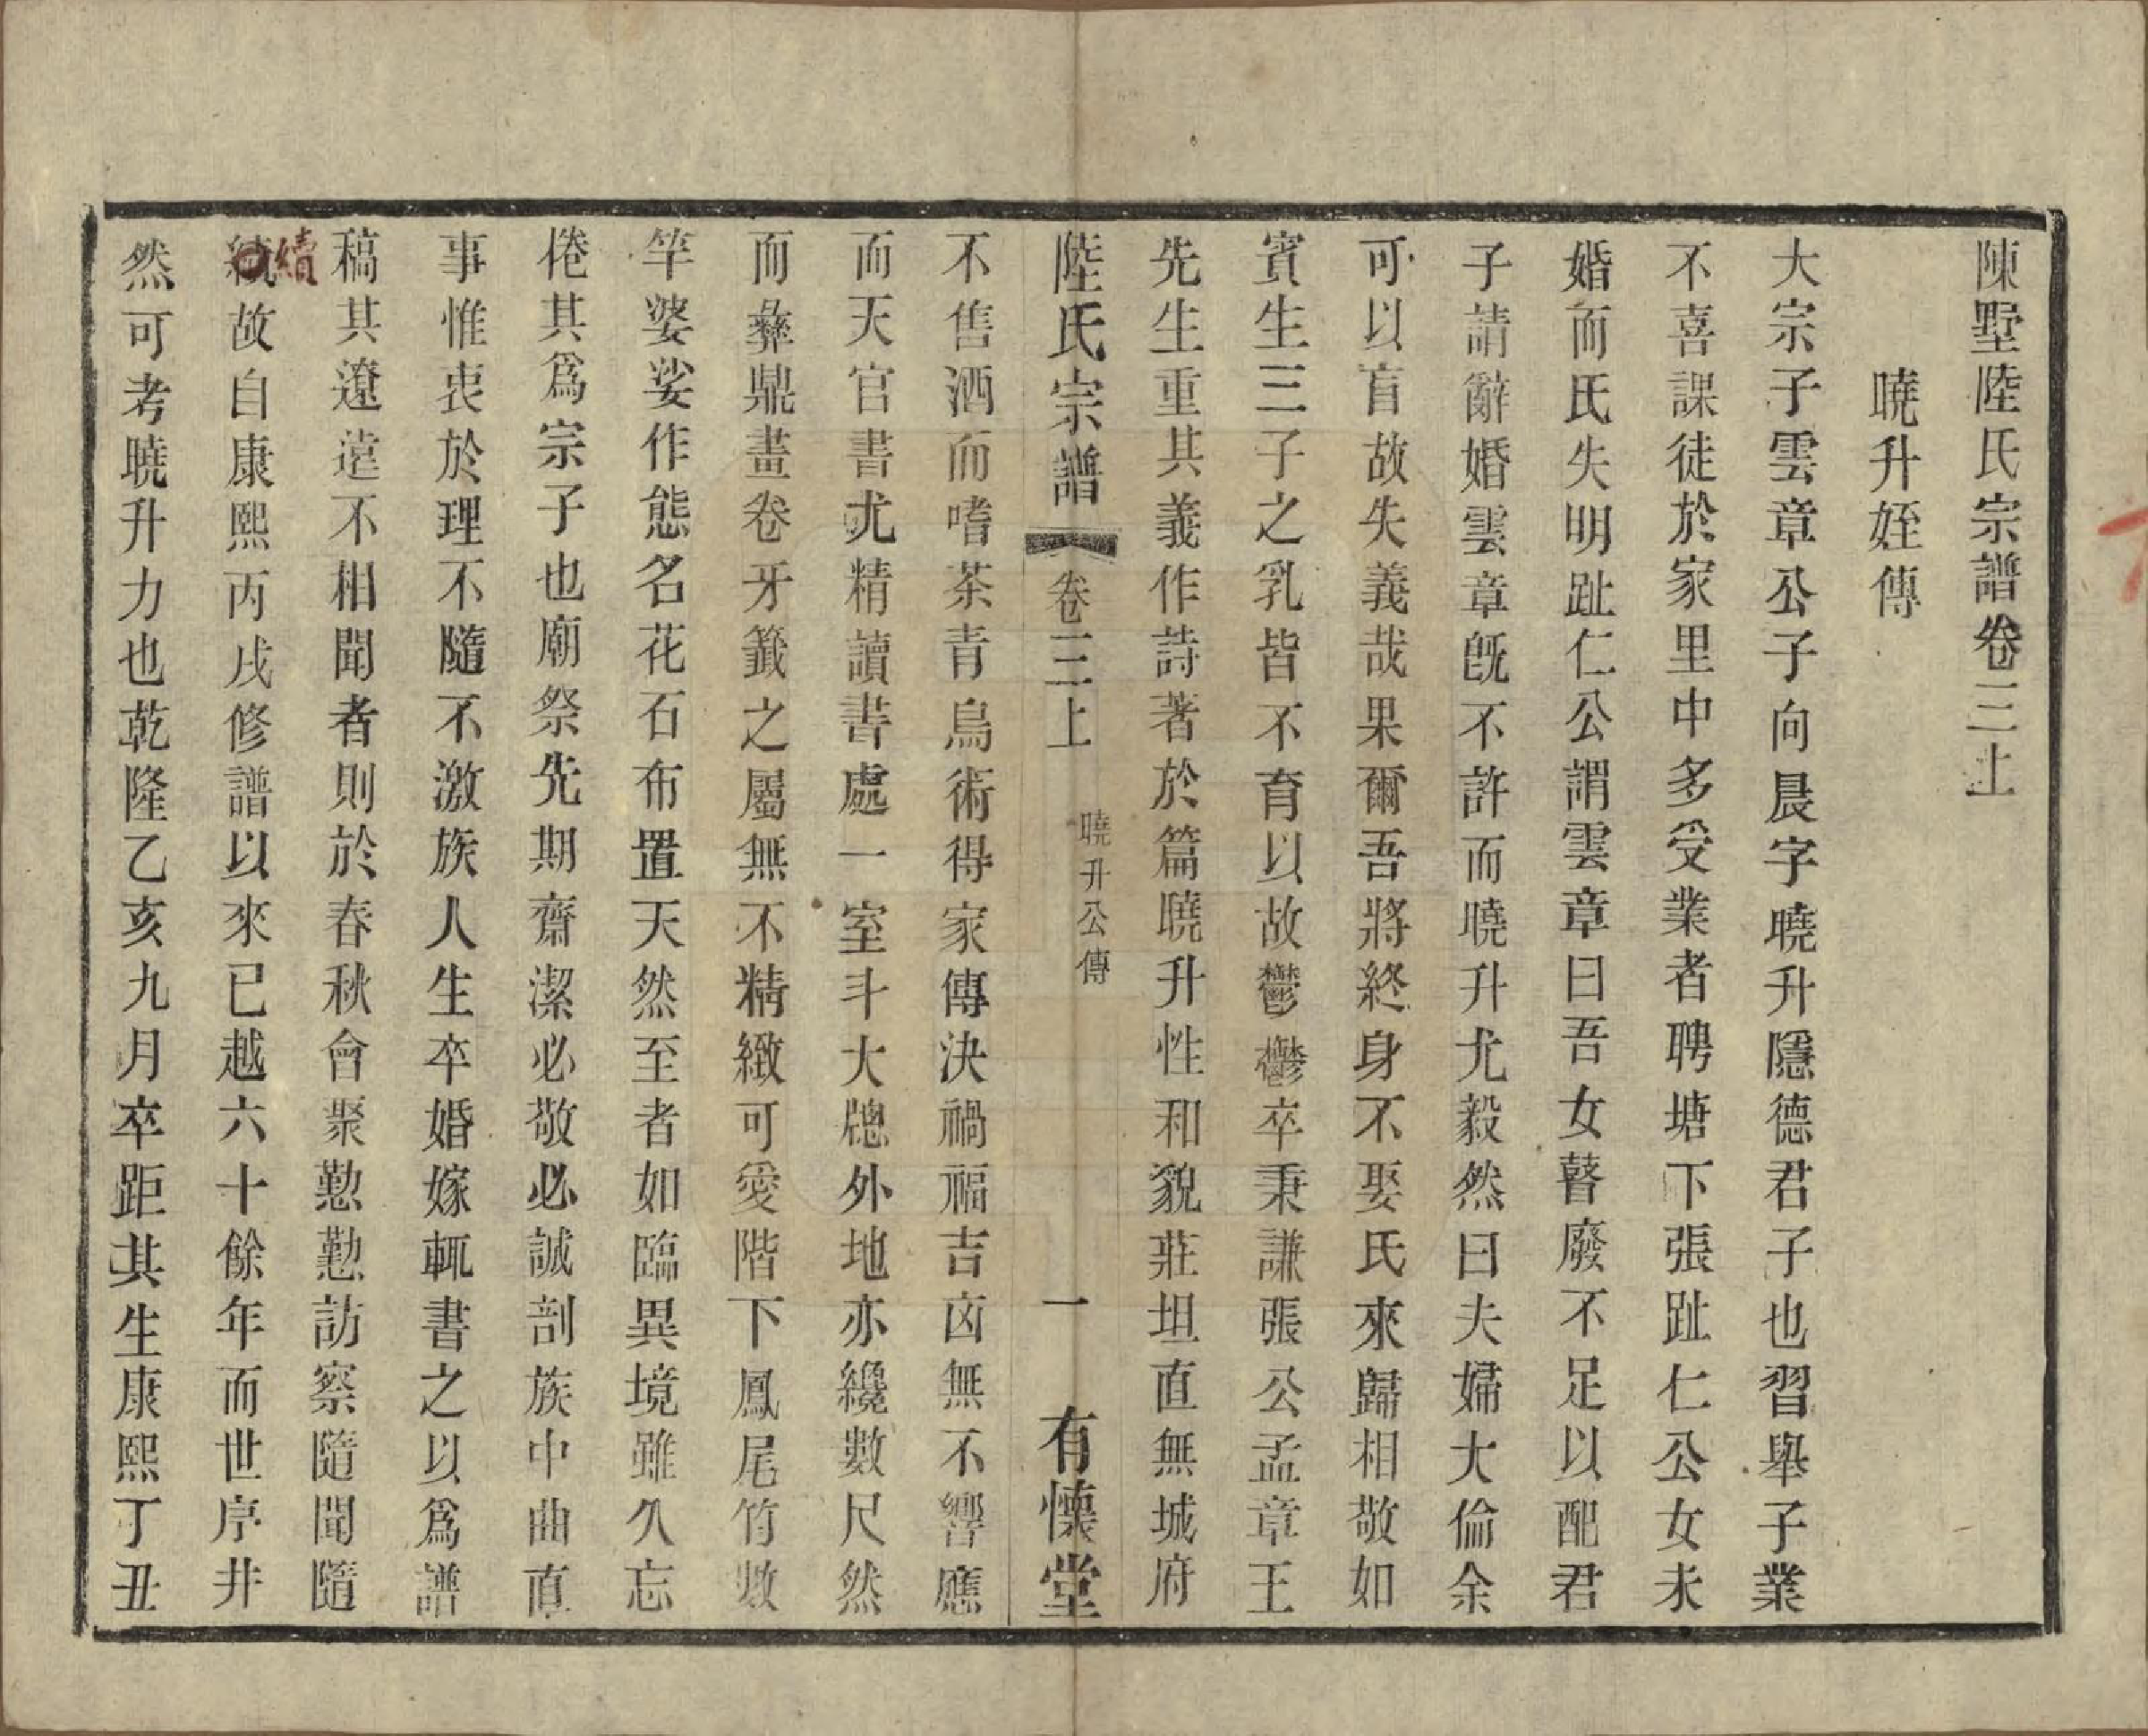 陳墅陸氏宗譜卷三上
曉升姪傳
大宗子雲章公子向晨字曉升隱德君子也習舉子業
不喜課徒於家里中多受業者聘塘下張趾仁公女未
婚而氏失明趾仁公謂雲章曰吾女瞽廢不足以配君
子請辭婚雲章旣不許而曉升尤毅然曰夫婦大倫余
可以盲故失義哉果爾吾將終身不娶氏來歸相敬如
賓生三子之乳皆不育以故鬱鬱卒秉謙張公孟章王
先生重其義作詩著於篇曉升性和貌莊坦直無城府
陸氏宗譜
卷三上
曉升公傳
一
有懷堂
不售酒而嗜茶青烏術得家傳決禍福吉凶無不響應
而天官書尤精讀書處一室斗大牕外地亦纔數尺然
而彝鼎畫卷牙籤之屬無不精緻可愛階下鳳尾竹數
竿婆娑作態名花石布置天然至者如臨異境雖久忘
倦其爲宗子也廟祭先期齋潔必敬必誠剖族中曲直
事惟衷於理不隨不激族人生卒婚嫁輒書之以爲譜
稿其遼遠不相聞者則於春秋會聚懃懃訪察隨聞隨
續
故自康熙丙戌修譜以來已越六十餘年而世序井
然可考曉升力也乾隆乙亥九月卒距其生康熙丁丑